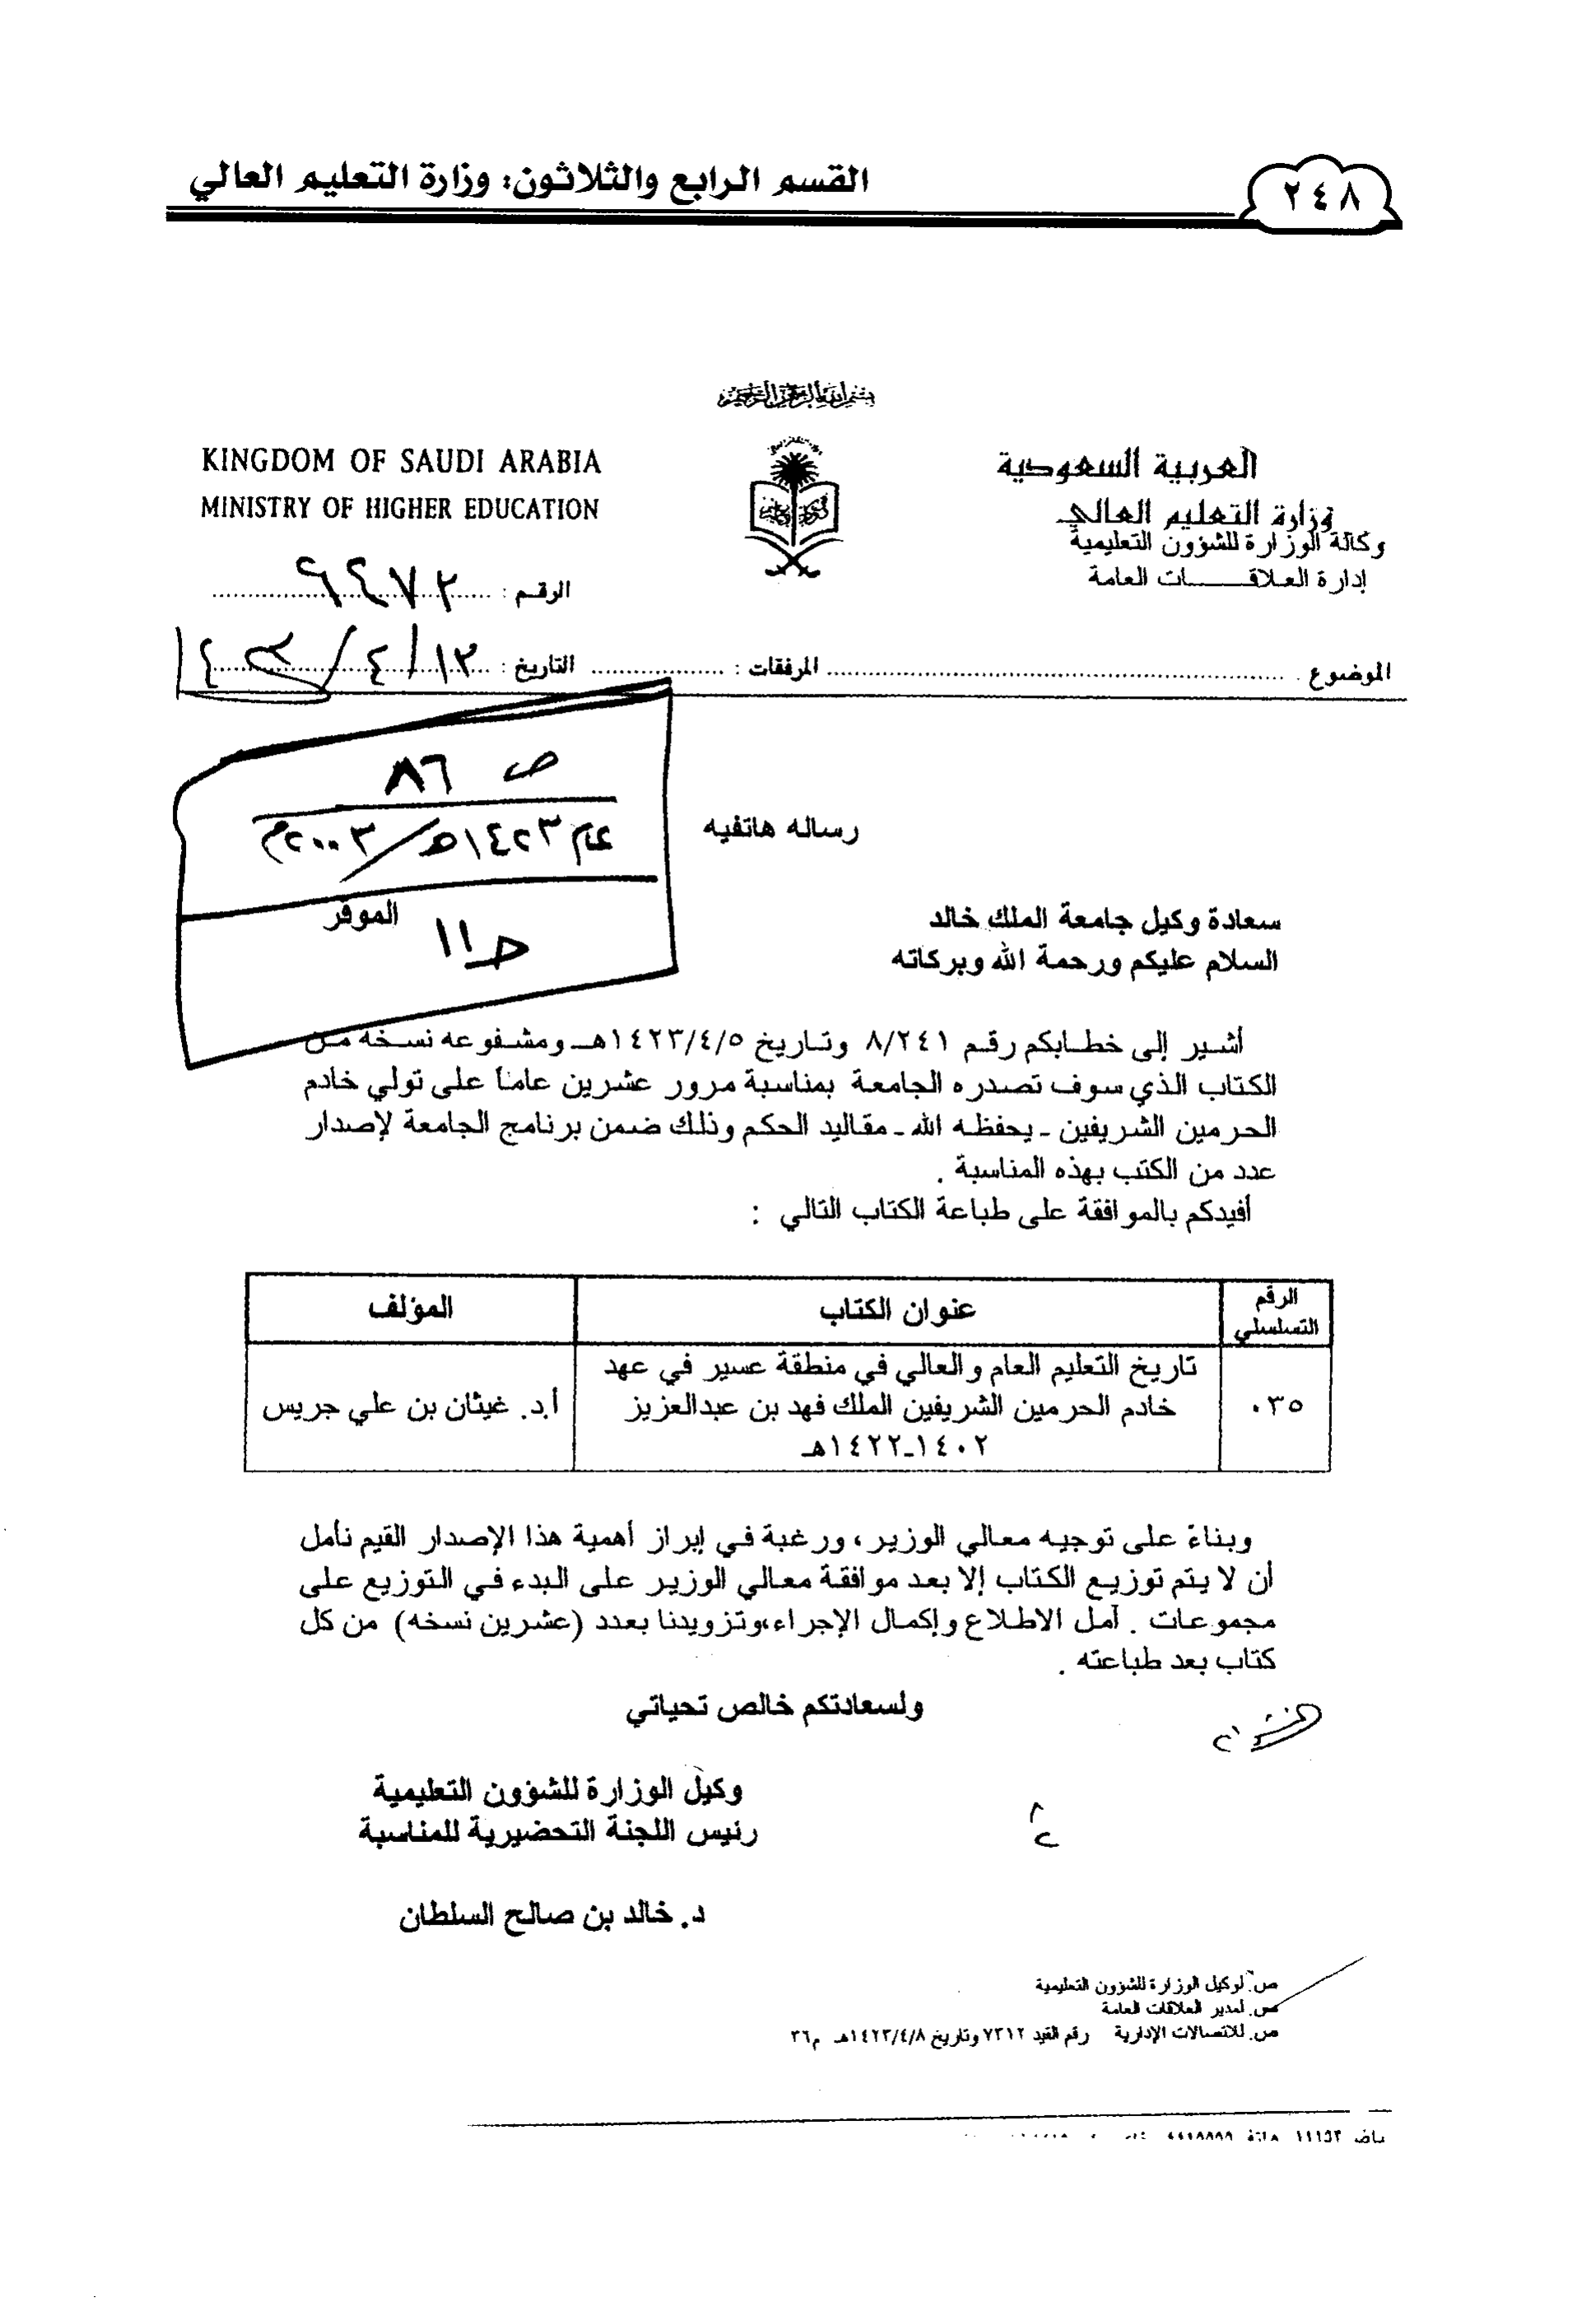 القسم الرابع والثلاثون: وزارة التعليم العالي
٢٤٨
بسم الله الرحمن الرحيم
KINGDOM OF SAUDI ARABIA
MINISTRY OF HIGHER EDUCATION
العربية السعودية
وزارة التعليم العالي
وكالة الوزارة للشؤون التعليمية
إدارة العلاقـــــات العامة
الرقم :
الموضوع . المرفقات : التاريخ : ١٤٢٣/٤/١٢
ص ٨٦
عام ١٤٢٣هـ/٢٠٠٣م
ج١١
رساله هاتفيه
سعادة وكيل جامعة الملك خالد الموقر
السلام عليكم ورحمة الله وبركاته
أشير إلى خطابكم رقم ٨/٢٤١ وتاريخ ١٤٢٣/٤/٥هـ ومشفوعه نسخه من
الكتاب الذي سوف تصدره الجامعة بمناسبة مرور عشرين عاماً على تولي خادم
الحرمين الشريفين ـ يحفظه الله ـ مقاليد الحكم وذلك ضمن برنامج الجامعة لإصدار
عدد من الكتب بهذه المناسبة .
أفيدكم بالموافقة على طباعة الكتاب التالي :
الرقم التسلسلي عنوان الكتاب المؤلف
تاريخ التعليم العام والعالي في منطقة عسير في عهد
٠٣٥ خادم الحرمين الشريفين الملك فهد بن عبدالعزيز أ.د. غيثان بن علي جريس
١٤٠٢ـ١٤٢٢هـ
وبناءً على توجيه معالي الوزير، ورغبة في إبراز أهمية هذا الإصدار القيم نأمل
أن لا يتم توزيع الكتاب إلا بعد موافقة معالي الوزير على البدء في التوزيع على
مجموعات . آمل الاطلاع وإكمال الإجراء،وتزويدنا بعدد (عشرين نسخه) من كل
كتاب بعد طباعته .
ولسعادتكم خالص تحياتي
وكيل الوزارة للشؤون التعليمية
رئيس اللجنة التحضيرية للمناسبة
د. خالد بن صالح السلطان
ص. لوكيل الوزارة للشؤون التعليمية
ص. لمدير العلاقات العامة
ص. للاتصالات الإدارية رقم القيد ٧٣١٢ وتاريخ ١٤٢٣/٤/٨هـ م٣٦